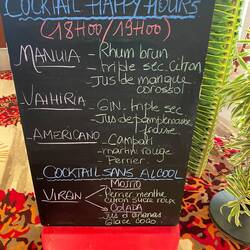 COCKTAIL HAPPY HOURS
(18H00 / 19H00)
MANUIA - Rhum brun
- triple sec. Citron
- Jus de mangue
corossol
VAIHIRIA - GIN. triple sec
- Jus de pamplemousse
fraise
AMERICANO - Campari
- martini rouge
- Perrier.
COCKTAIL SANS ALCOOL
MOJITO
VIRGIN - Perrier menthe
citron sucre roux
COLADA
- Jus d'ananas
Glace coco